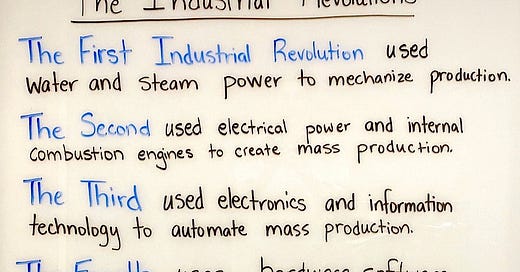 The Industrial Revolutions
The First Industrial Revolution used
Water and steam power to mechanize production.
The Second used electrical power and internal
combustion engines to create mass production.
The Third used electronics and information
technology to automate mass production.
The Fourth hardware software